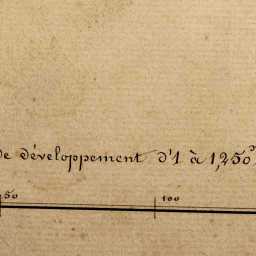 de développement d'1 à 1,250
50 100